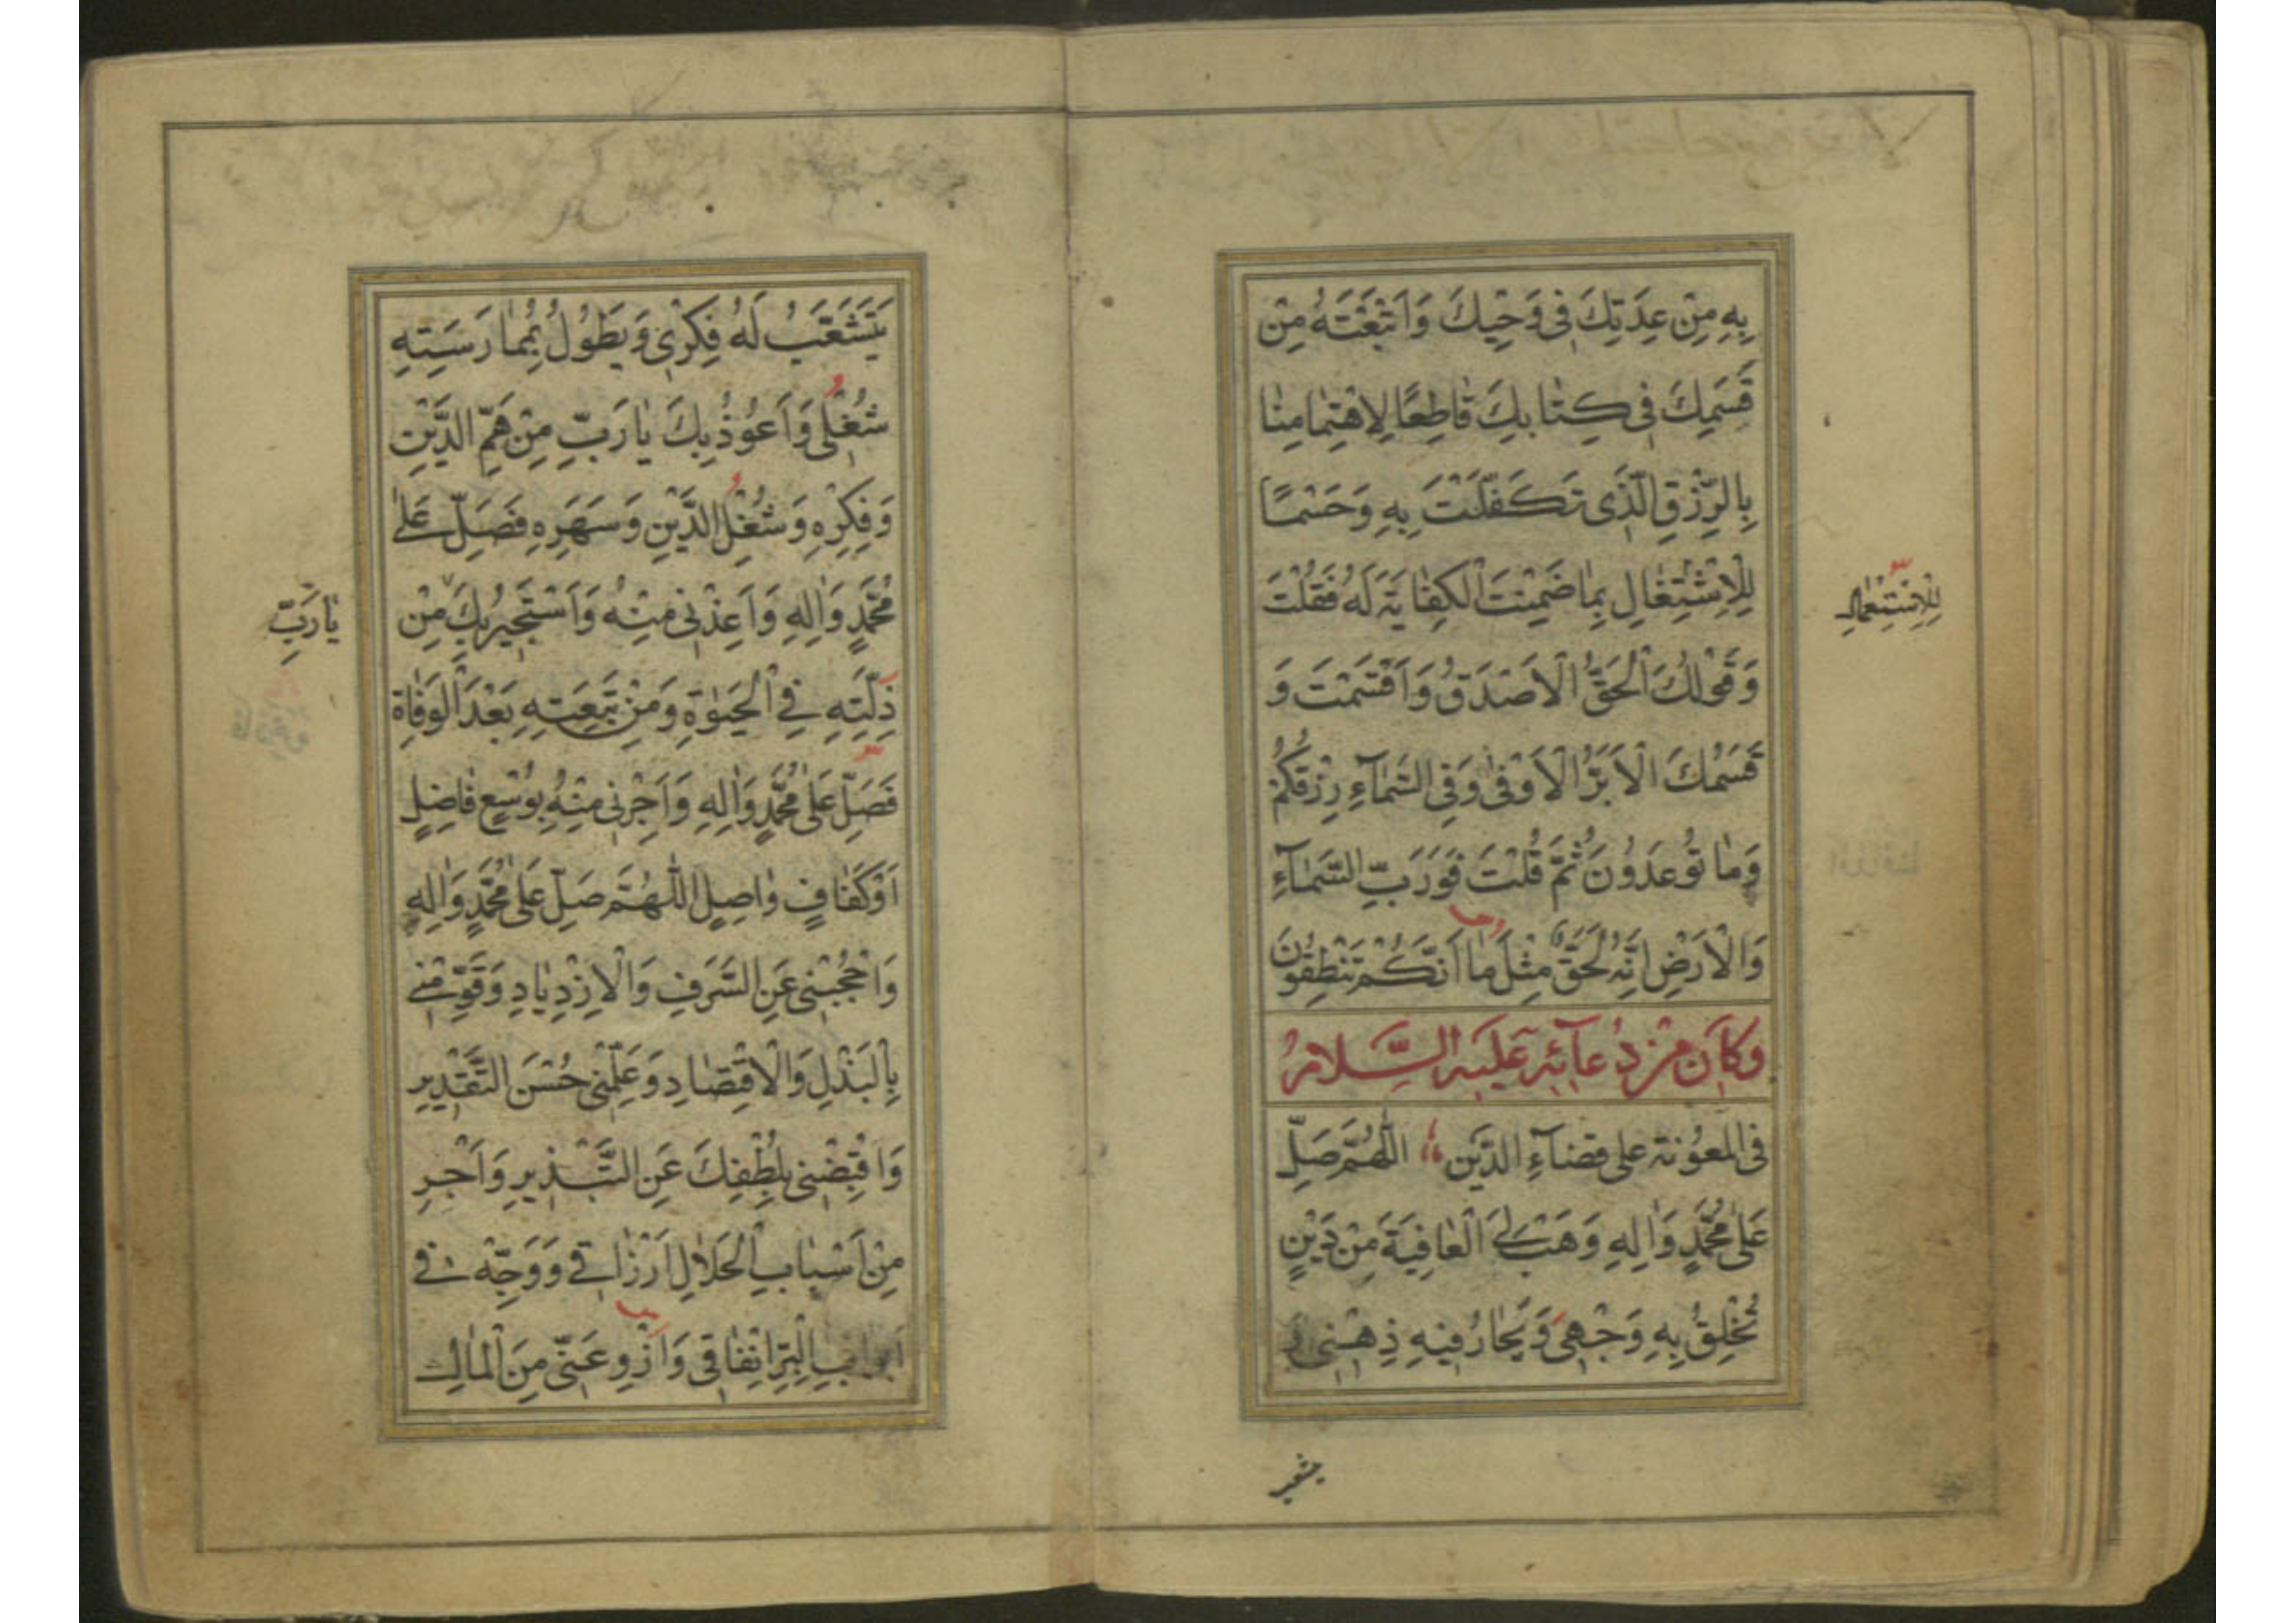 بِهِ مِنْ عِدَتِكَ فِي وَحْيِكَ وَاَتْبَعْتَهُ مِنْ
قَسَمِكَ فِي كِتَابِكَ قَاطِعًا لِاهْتِمَامِنَا
بِالرِّزْقِ الَّذِى تَكَفَّلْتَ بِهِ وَحَسْمًا
لِلْاِشْتِغَالِ بِمَا ضَمِنْتَ الْكِفَايَةَ لَهُ فَقُلْتَ
لِلْاِسْتِعْمَالِ
وَقَوْلُكَ الْحَقُّ الْاَصْدَقُ وَاَقْسَمْتَ وَ
قَسَمُكَ الْاَبَرُّ الْاَوْفٰى وَفِي السَّمَآءِ رِزْقُكُمْ
وَمَا تُوعَدُونَ ثُمَّ قُلْتَ فَوَرَبِّ السَّمَآءِ
وَالْاَرْضِ اِنَّهُ لَحَقٌّ مِثْلَ مَا اَنَّكُمْ تَنْطِقُونَ
وَكَانَ مِنْ دُعَآئِهِ عَلَيْهِ السَّلَامُ
فِى الْمَعُونَةِ عَلٰى قَضَآءِ الدَّيْنِ اَللّٰهُمَّ صَلِّ
عَلٰى مُحَمَّدٍ وَاٰلِهِ وَهَبْ لِيَ الْعَافِيَةَ مِنْ دَيْنٍ
تُخْلِقُ بِهِ وَجْهِى وَيَحَارُ فِيهِ ذِهْنِى وَ
يَتَشَعَّبُ لَهُ فِكْرِى وَيَطُولُ بِمُمَارَسَتِهِ
شُغْلِى وَاَعُوذُ بِكَ يَا رَبِّ مِنْ هَمِّ الدَّيْنِ
وَفِكْرِهِ وَشُغْلِ الدَّيْنِ وَسَهَرِهِ فَصَلِّ عَلٰى
مُحَمَّدٍ وَاٰلِهِ وَاَعِذْنِى مِنْهُ وَاَسْتَجِيرُ بِكَ مِنْ
يَا رَبِّ
ذِلَّتِهِ فِي الْحَيٰوةِ وَمِنْ تَبِعَتِهِ بَعْدَ الْوَفَاةِ
فَصَلِّ عَلٰى مُحَمَّدٍ وَاٰلِهِ وَاَجِرْنِى مِنْهُ بِوُسْعٍ فَاضِلٍ
اَوْ كَفَافٍ وَاصِلٍ اَللّٰهُمَّ صَلِّ عَلٰى مُحَمَّدٍ وَاٰلِهِ
وَاحْجُبْنِى عَنِ السَّرَفِ وَالْاِزْدِيَادِ وَقَوِّمْنِى
بِالْبَذْلِ وَالْاِقْتِصَادِ وَعَلِّمْنِى حُسْنَ التَّقْدِيرِ
وَاقْبِضْنِى بِلُطْفِكَ عَنِ التَّبْذِيرِ وَاَجْرِ
مِنْ اَسْبَابِ الْحَلَالِ اَرْزَاقِى وَوَجِّهْ فِى
اَبْوَابِ الْبِرِّ اِنْفَاقِى وَازْوِ عَنِّى مِنَ الْمَالِ